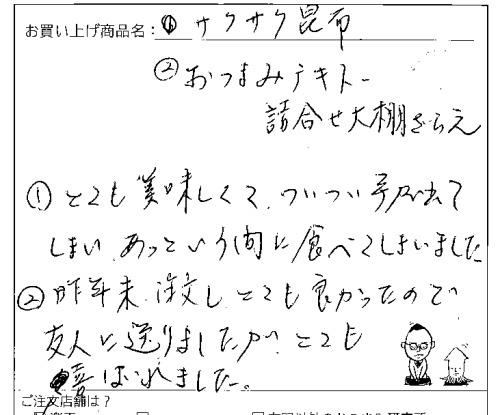 お買い上げ商品名：① サクサク昆布
② おつまみテキトー
詰合せ大棚ざらえ
① とても美味しくて、ついつい手が出て
しまい あっという間に食べてしまいました
② 昨年末、注文し とても良かったので
友人に送りましたが とても
喜ばれました。
ご注文店舗は？